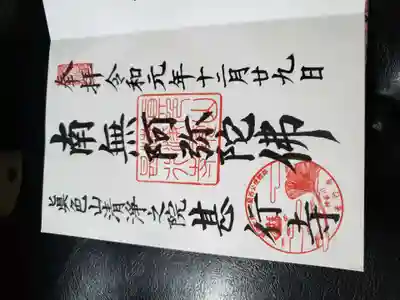 奉拝 令和元年十二月廿九日
南無阿弥陀佛
眞色山清浄文院 甚行寺